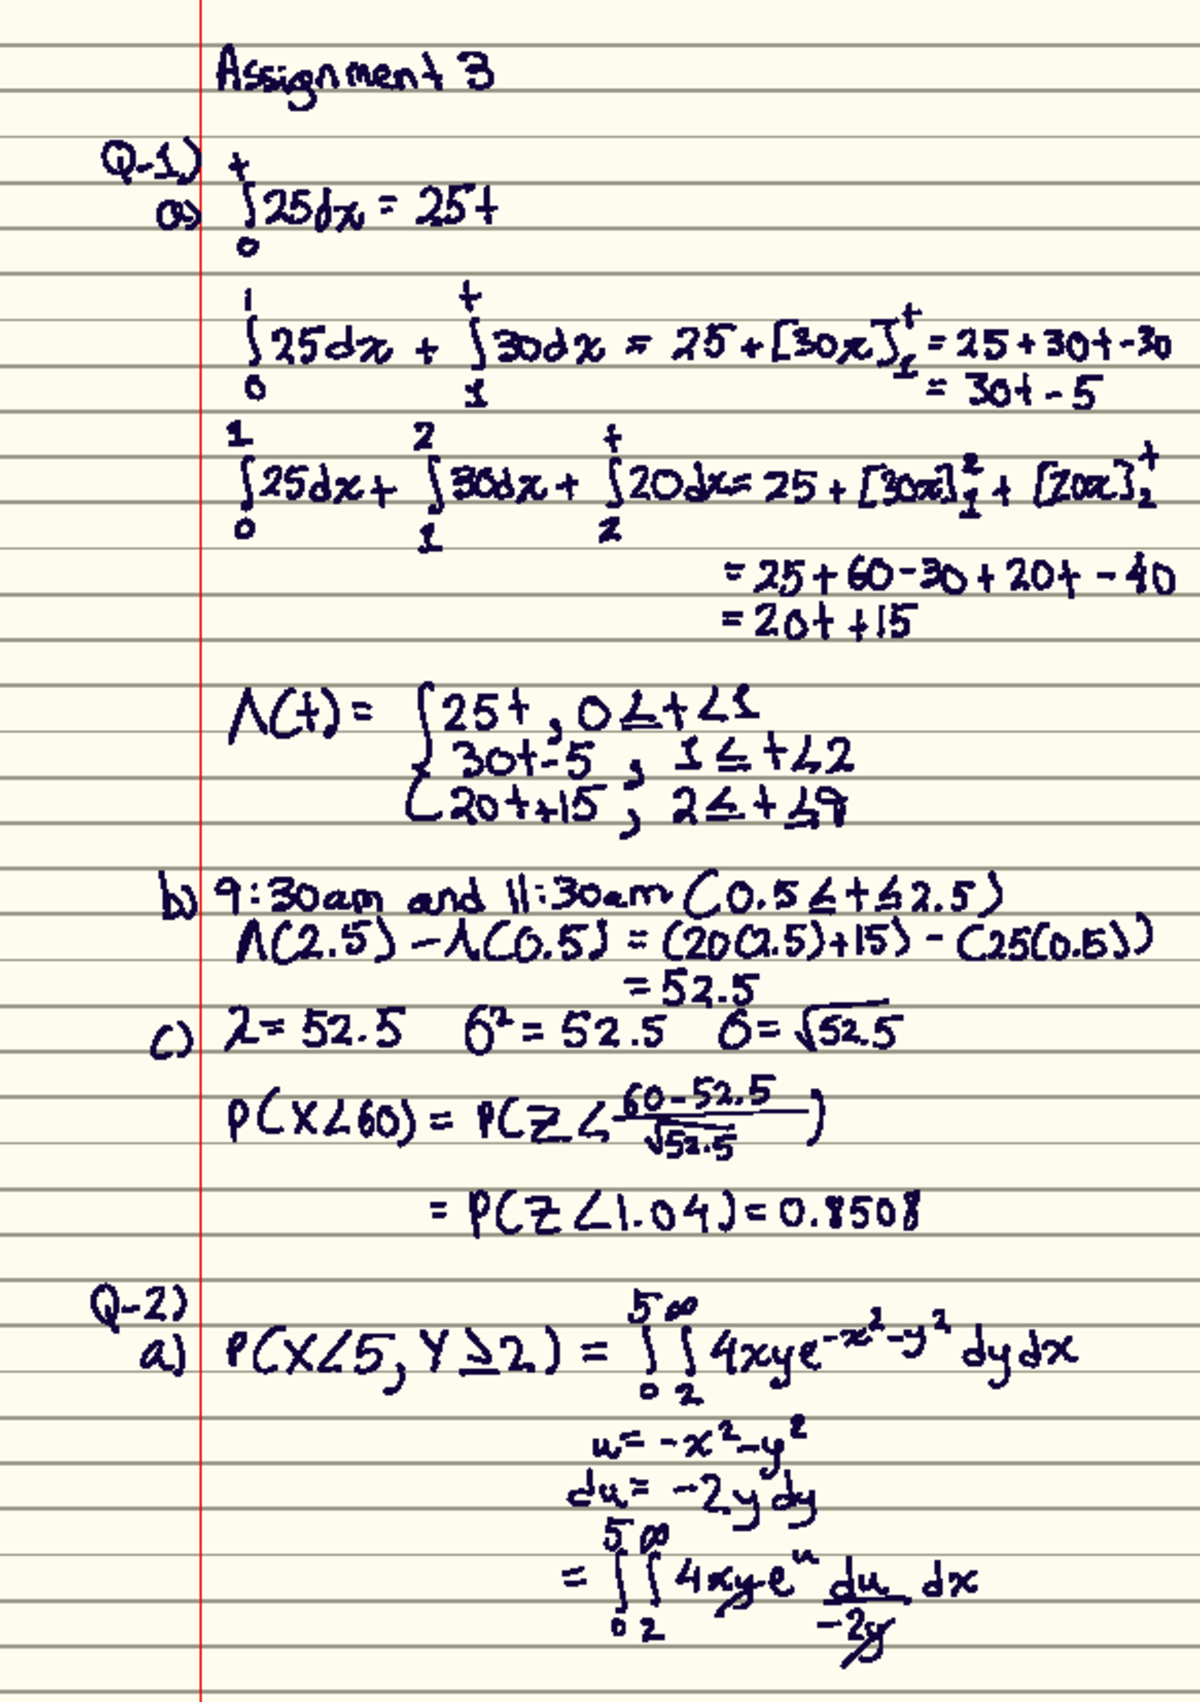 Assignment 3
Q-1)
a) ∫₀ᵗ 25dx = 25t
∫₀¹ 25dx + ∫₁ᵗ 30dx = 25 + [30x]₁ᵗ = 25 + 30t - 30
= 30t - 5
∫₀¹ 25dx + ∫₁² 30dx + ∫₂ᵗ 20dx = 25 + [30x]₁² + [20x]₂ᵗ
= 25 + 60 - 30 + 20t - 40
= 20t + 15
Λ(t) = { 25t , 0 ≤ t < 1
30t - 5 , 1 ≤ t < 2
20t + 15 , 2 ≤ t ≤ 9
b) 9:30am and 11:30am (0.5 ≤ t ≤ 2.5)
Λ(2.5) - Λ(0.5) = (20(2.5) + 15) - (25(0.5))
= 52.5
c) λ = 52.5 σ² = 52.5 σ = √52.5
P(X < 60) = P(Z < (60 - 52.5)/√52.5)
= P(Z < 1.04) = 0.8508
Q-2)
a) P(X < 5, Y ≥ 2) = ∫₀⁵ ∫₂^∞ 4xye^(-x²-y²) dydx
u = -x² - y²
du = -2y dy
= ∫₀⁵ ∫₂^∞ 4xye^u du/(-2y) dx